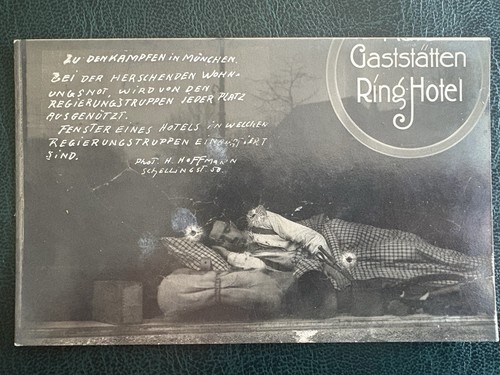 ZU DEN KÄMPFEN IN MÜNCHEN.
BEI DER HERSCHENDEN WOHN-
UNGSNOT, WIRD VON DEN
REGIERUNGSTRUPPEN JEDER PLATZ
AUSGENÜTZT.
FENSTER EINES HOTELS IN WELCHEN
REGIERUNGSTRUPPEN EINQUARTIERT
SIND.
PHOT. H. HOFFMANN
SCHELLINGST. 50.
Gaststätten
Ring Hotel